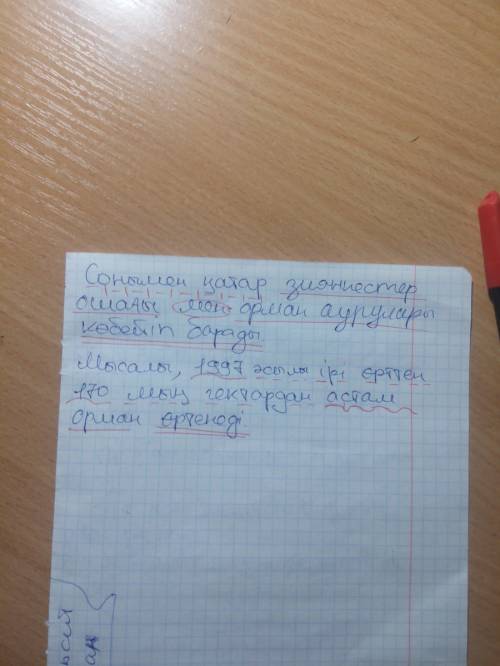 Сонымен қатар зиянкестер
ошағы мен орман аурулары
көбейіп барады.
Мысалы, 1997 жылы ірі өрттен
170 мың гектардан астам
орман өртенеді